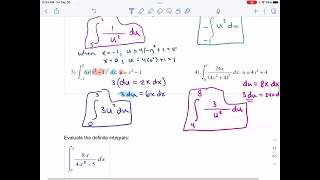 ∫ 1/u² du
5
∫ u³ du
-1
when x = -1, u = 4(-1)² + 1 = 5
x = 0, u = 4(0²) + 1 = 1
3) 6x(x² - 1)² dx; u = x² - 1
3(du = 2x dx)
3du = 6x dx
3
∫ 3u² du
0
4) ∫ 24x/(4x² + 4)² dx; u = 4x² + 4
du = 8x dx
3du = 24x dx
8
∫ 3/u² du
4
Evaluate the definite integrals:
∫ 8x/(4x² - 5) dx